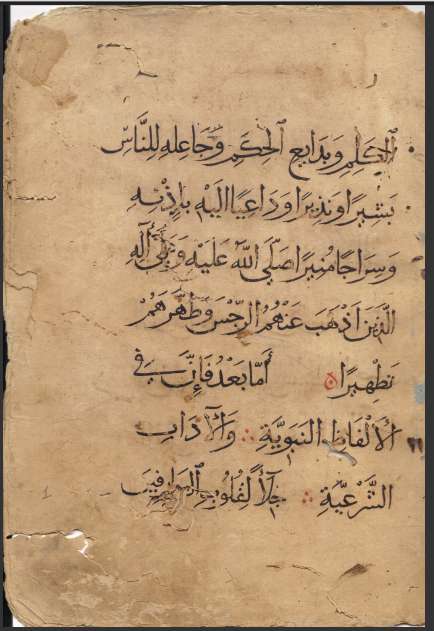 الكَلِمِ وَبَدَايِعِ الحِكَمِ وَجَاعِلِهِ لِلنَّاسِ
بَشِيرًا وَنَذِيرًا وَدَاعِيًا اِلَيْهِ بِاِذْنِهِ
وَسِرَاجًا مُنِيرًا صَلَّى اللهُ عَلَيْهِ وَعَلَى آلِهِ
الَّذِينَ اَذْهَبَ عَنْهُمُ الرِّجْسَ وَطَهَّرَهُمْ
تَطْهِيرًا أَمَّا بَعْدُ فَاِنَّ فِي
الاَلْفَاظِ النَّبَوِيَّةِ وَالآدَابِ
الشَّرْعِيَّةِ جَلَأً لِقُلُوبِ العَارِفِينَ